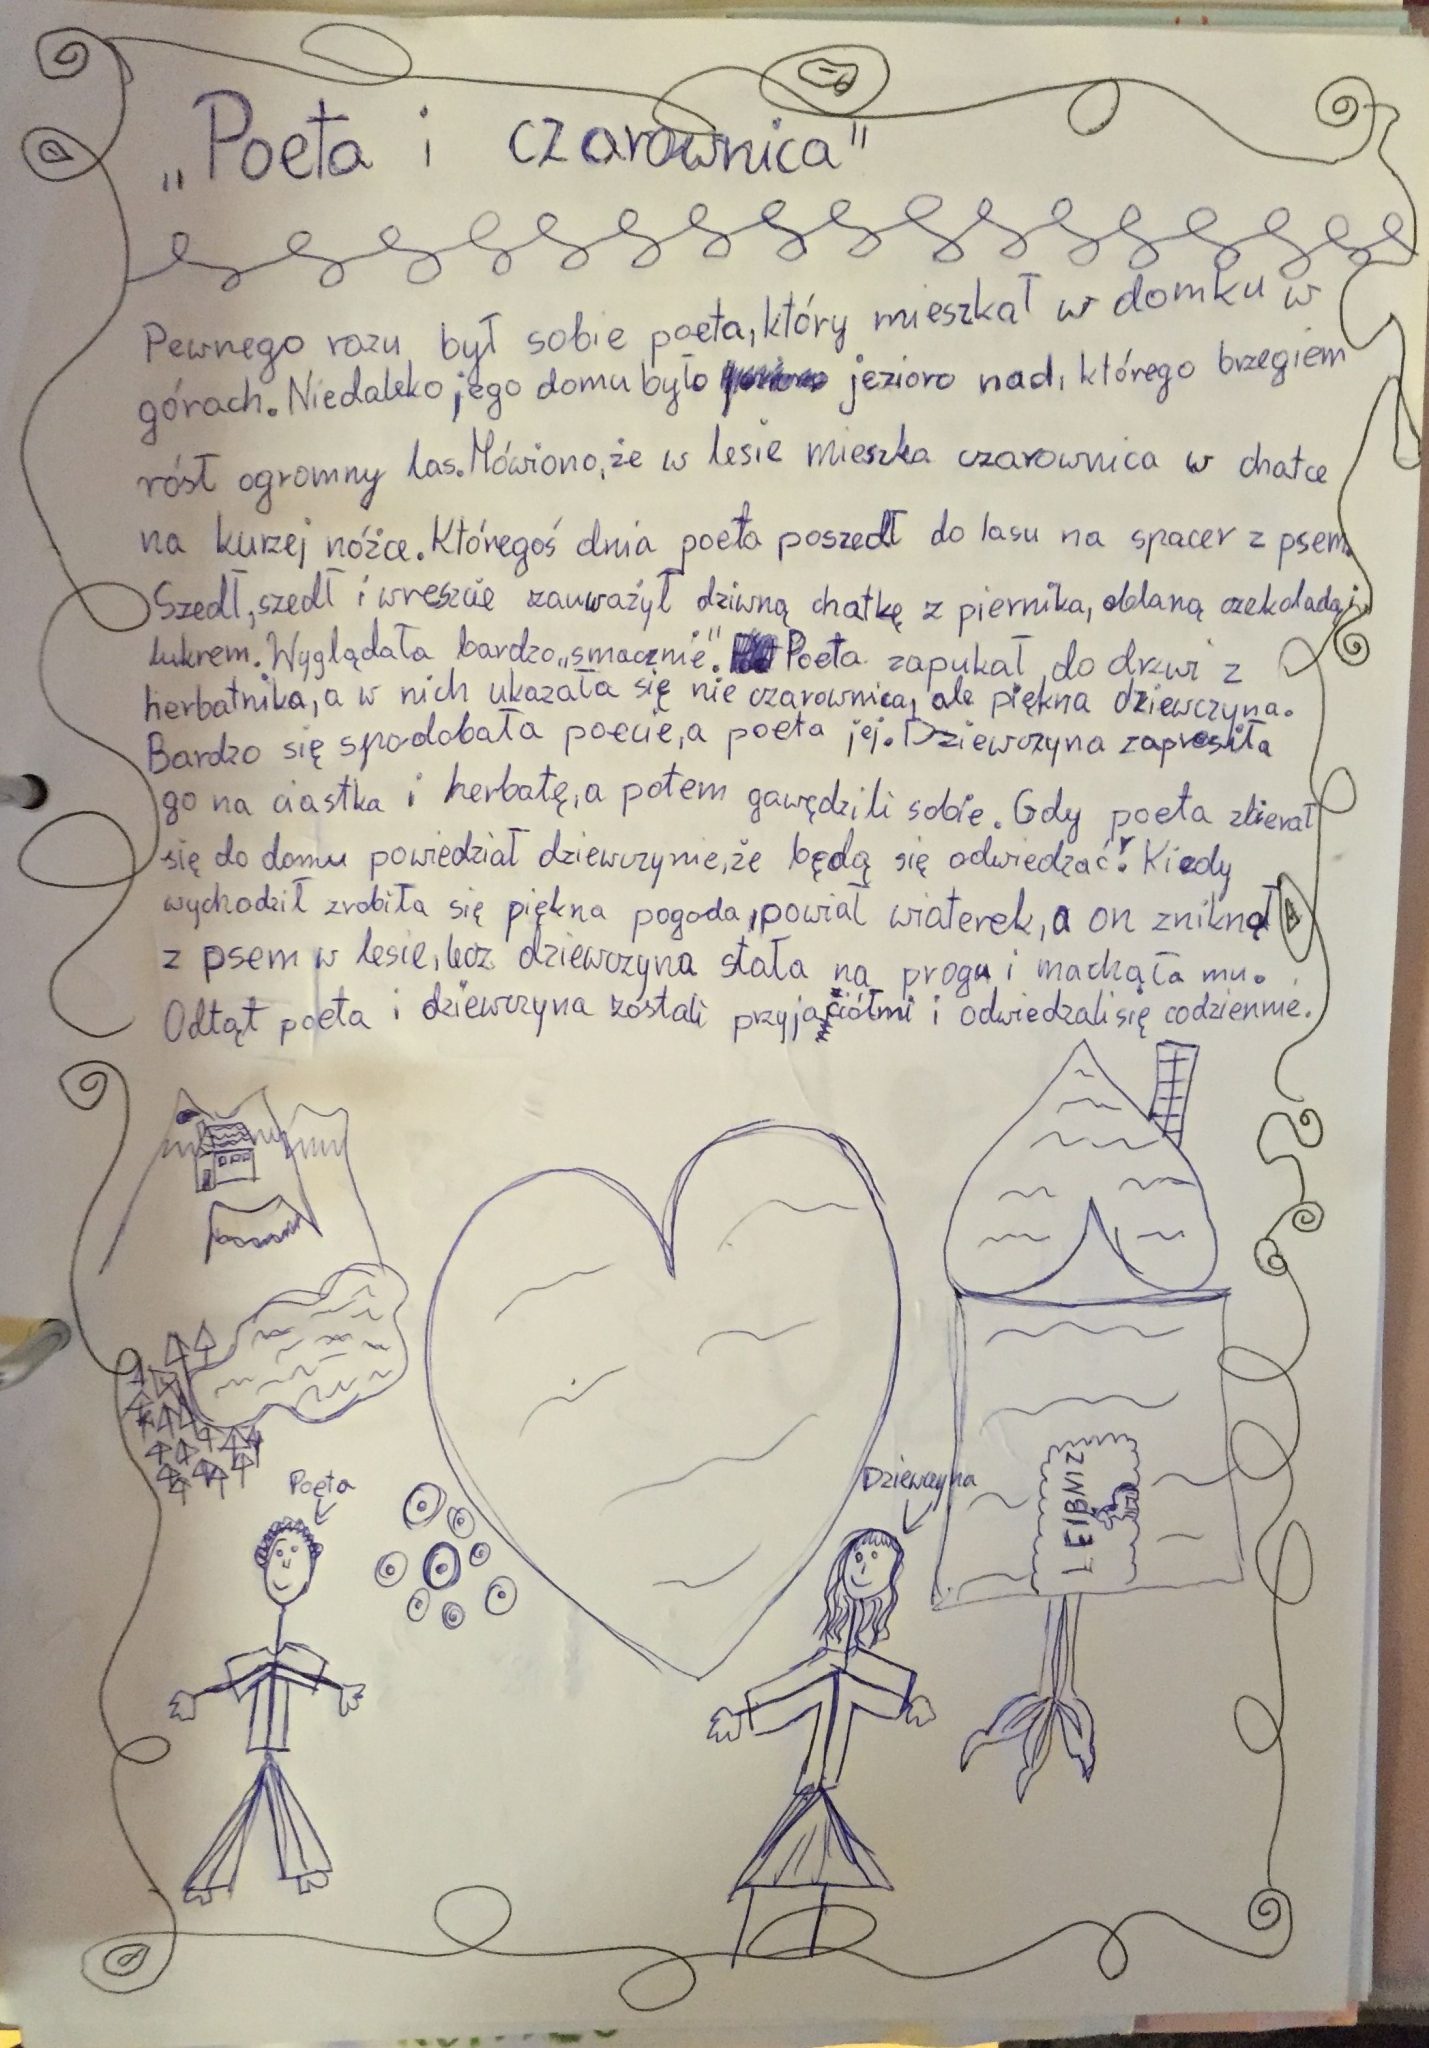 „Poeta i czarownica"
Pewnego razu był sobie poeta, który mieszkał w domku w
górach. Niedaleko jego domu było jezioro nad, którego brzegiem
rósł ogromny las. Mówiono, że w lesie mieszka czarownica w chatce
na kurzej nóżce. Któregoś dnia poeta poszedł do lasu na spacer z psem.
Szedł, szedł i wreszcie zauważył dziwną chatkę z piernika, oblaną czekoladą i
lukrem. Wyglądała bardzo „smacznie". Poeta zapukał do drzwi z
herbatnika, a w nich ukazała się nie czarownica, ale piękna dziewczyna.
Bardzo się spodobała poecie, a poeta jej. Dziewczyna zaprosiła
go na ciastka i herbatę, a potem gawędzili sobie. Gdy poeta zbierał
się do domu powiedział dziewczynie, że będą się odwiedzać! Kiedy
wychodził zrobiła się piękna pogoda, powiał wiaterek, a on zniknął
z psem w lesie, lecz dziewczyna stała na progu i machała mu.
Odtąt poeta i dziewczyna zostali przyjaciółmi i odwiedzali się codziennie.
Poeta
Dziewczyna
LEIBNIZ